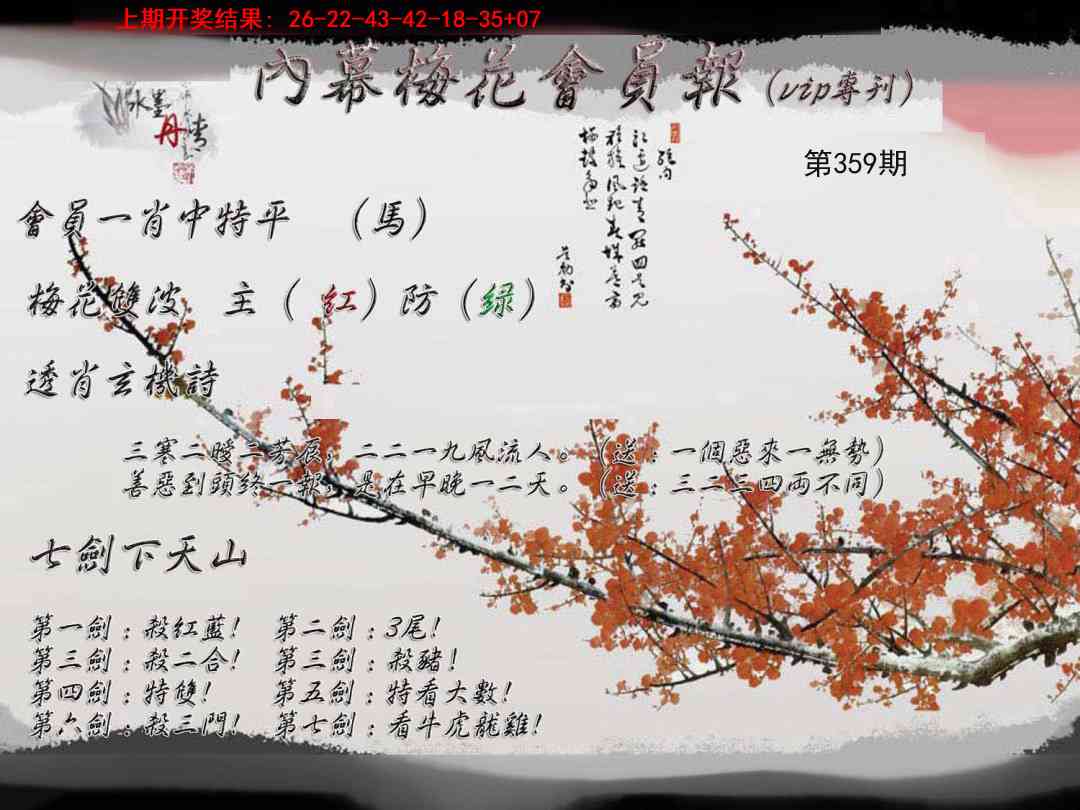 上期开奖结果: 26-22-43-42-18-35+07
內幕梅花會員報(vip專刊)
水墨
丹青
第359期
會員一肖中特平 (馬)
梅花雙波 主(紅)防(緑)
透肖玄機詩
三寒二曖二芳辰,二二一九風流人。(送:一個惡來一無勢)
善惡到頭終一報,是在早晚一二天。(送:三二三四兩不同)
七劍下天山
第一劍:殺紅藍! 第二劍:3尾!
第三劍:殺二合! 第三劍:殺豬!
第四劍:特雙! 第五劍:特看大數!
第六劍:殺三門! 第七劍:看牛虎龍雞!